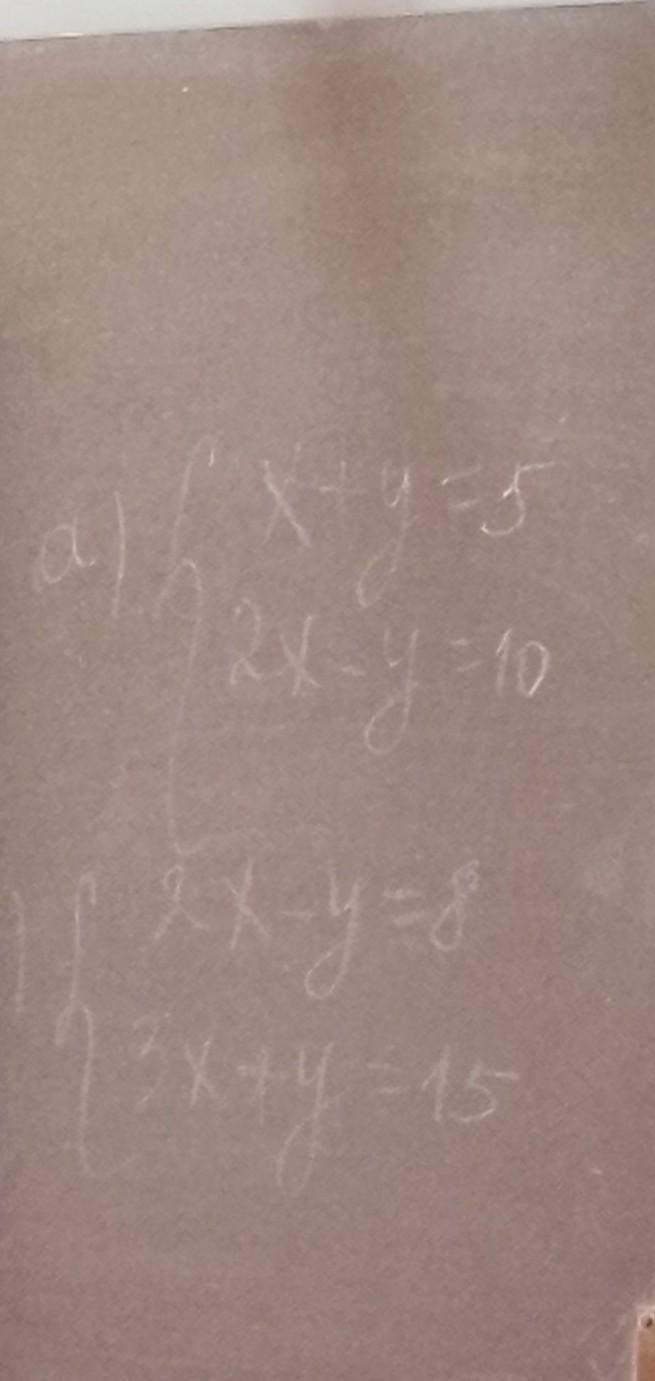 a) { x + y = 5
2x - y = 10
) { 2x - y = 8
3x + y = 15